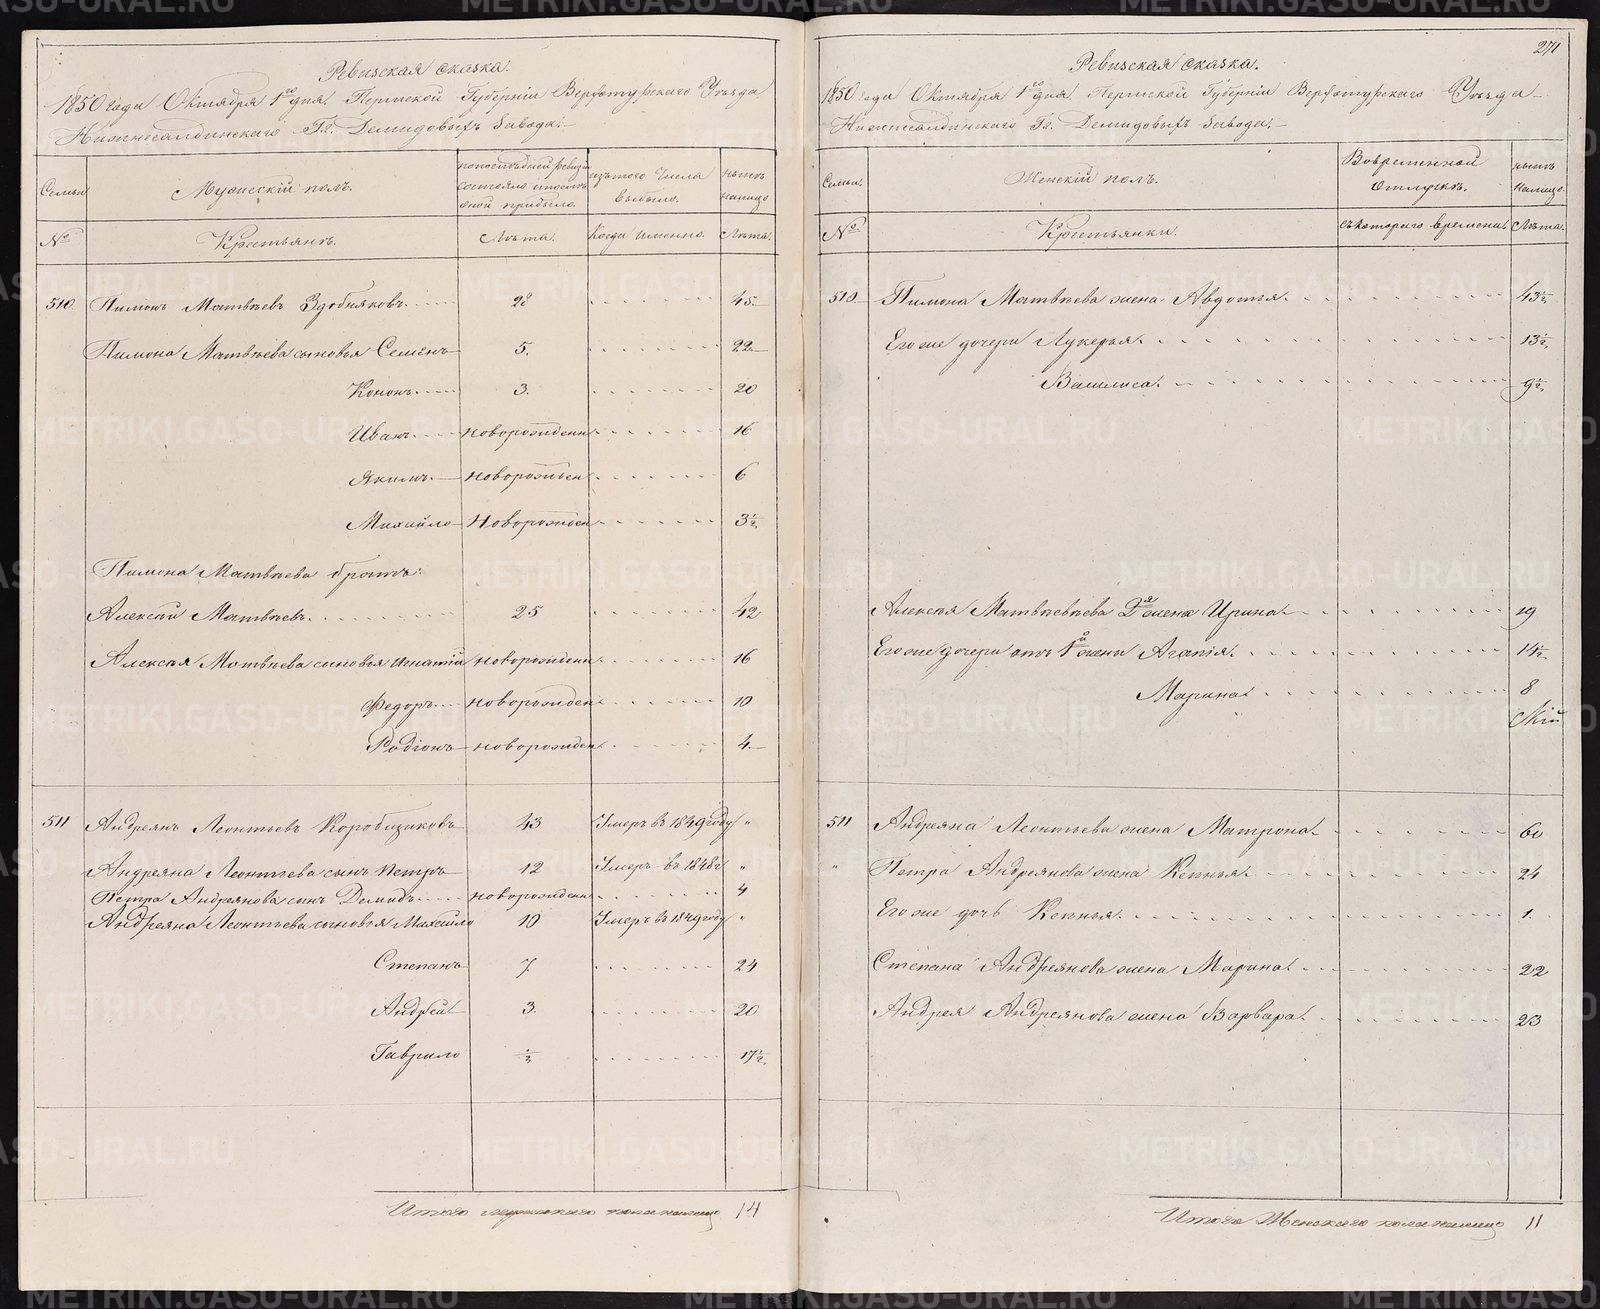 Ревизская сказка.
1850 года Октября 1го дня. Пермской Губернiи Верхотурскаго Уезда
Нижнесалдинскаго Гг. Демидовыхъ Завода.
Семьи
Мужескiй полъ.
по последней ревизiи состояло и после оной прибыло.
изъ того числа выбыло.
ныне на лицо
№
Крестьянъ.
Лѣта.
Когда именно.
Лѣта.
510. Пимонъ Матвѣевъ Здобняковъ. 28 45
Пимона Матвѣева сыновья Семенъ 5. 22
Кононъ 3. 20
Иванъ новорожденъ 16
Якимъ новорожден 6
Михайло Новорожден 3½
Пимона Матвѣева братъ:
Алексѣй Матвѣевъ. 25 42
Алексѣя Матвѣева сыновья Игнатiй новорожденъ 16
Федоръ новорожден 10
Родiонъ новорожден 4
511 Андреянъ Леонтьевъ Коробщиковъ 43 Умеръ въ 1849 году "
Андреяна Леонтьева сынъ Петръ 12 Умеръ въ 1848 г "
Петра Андреянова сынъ Демидъ новорожденъ 4
Андреяна Леонтьева сыновья Михайло 10 Умеръ въ 1849 году "
Степанъ 7. 24
Андрей 3. 20
Гаврило ½ 17½
Итого мужескаго пола налицо 14
271
Ревизская сказка.
1850 года Октября 1го дня. Пермской Губернiи Верхотурскаго Уезда
Нижнесалдинскаго Гг. Демидовыхъ Завода.
Семьи.
Женскiй полъ.
Во временной отлучкѣ.
ныне налицо
№
Крестьянки.
съ котораго времени.
Лѣта.
510 Пимона Матвѣева жена Авдотья. 43½
Его же дочери Лукерья. 13½
Василиса. 9½
Алексѣя Матвѣевѣева 2я жена Ирина 19
Его же дочери отъ 1й жены Агапiя. 14½
Марина. 8
511 Андреяна Леонтьева жена Матрона. 60
" Петра Андреянова жена Ксенья. 24
Его же дочь Ксенья. 1.
Степана Андреянова жена Марина. 22
Андрея Андреянова жена Варвара. 23
Итого Женскаго пола налицо 11
METRIKI.GASO-URAL.RU